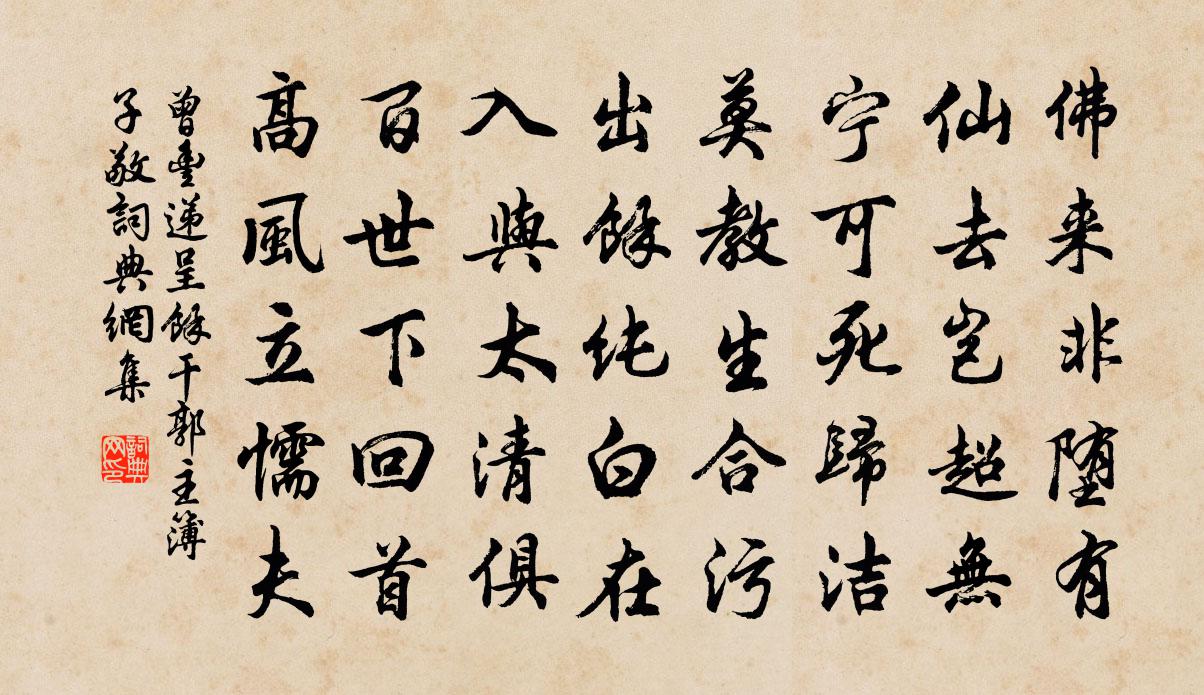 佛来非堕有
仙去岂超無
宁可死歸洁
莫教生合污
出餘纯白在
入與太清俱
百世下回首
高風立懦夫
曾豐递呈餘干郭主簿
子敬詞典網集
詞典网印